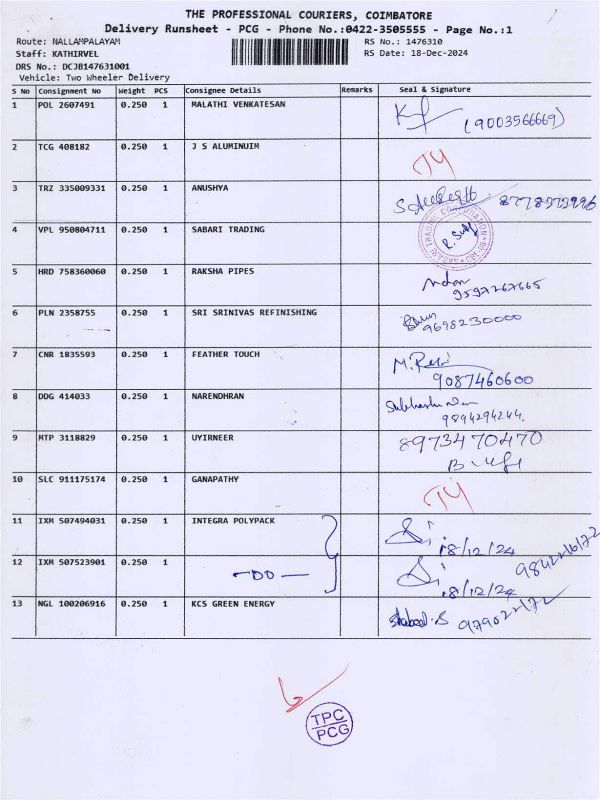 THE PROFESSIONAL COURIERS, COIMBATORE
Delivery Runsheet - PCG - Phone No.:0422-3505555 - Page No.:1
Route: NALLAMPALAYAM RS No.: 1476310
Staff: KATHIRVEL RS Date: 18-Dec-2024
DRS No.: DCJB147631001
Vehicle: Two Wheeler Delivery
S No Consignment No Weight PCS Consignee Details Remarks Seal & Signature
1 POL 2607491 0.250 1 MALATHI VENKATESAN
(9003566669)
2 TCG 408182 0.250 1 J S ALUMINUIM
3 TRZ 335009331 0.250 1 ANUSHYA
4 VPL 950804711 0.250 1 SABARI TRADING
5 HRD 758360060 0.250 1 RAKSHA PIPES
9597267665
6 PLN 2358755 0.250 1 SRI SRINIVAS REFINISHING
9698230000
7 CNR 1835593 0.250 1 FEATHER TOUCH
9087460600
8 DDG 414033 0.250 1 NARENDHRAN
9894294244.
9 MTP 3118829 0.250 1 UYIRNEER 8973470470
10 SLC 911175174 0.250 1 GANAPATHY
11 IXM 507494031 0.250 1 INTEGRA POLYPACK
18/12/24
12 IXM 507523901 0.250 1 -DO-
18/12/24
13 NGL 100206916 0.250 1 KCS GREEN ENERGY
TPC
PCG